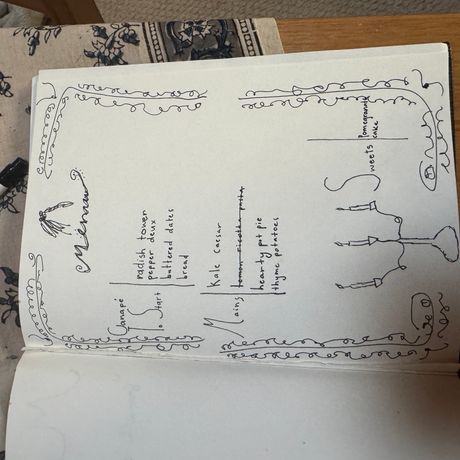 Menu
Canapé
to Start
radish tower
pepper deux
buttered dates
bread
Mains
Kale caesar
lemon ricotta pasta
hearty pot pie
thyme potatoes
Sweets
Pomegranate
cake